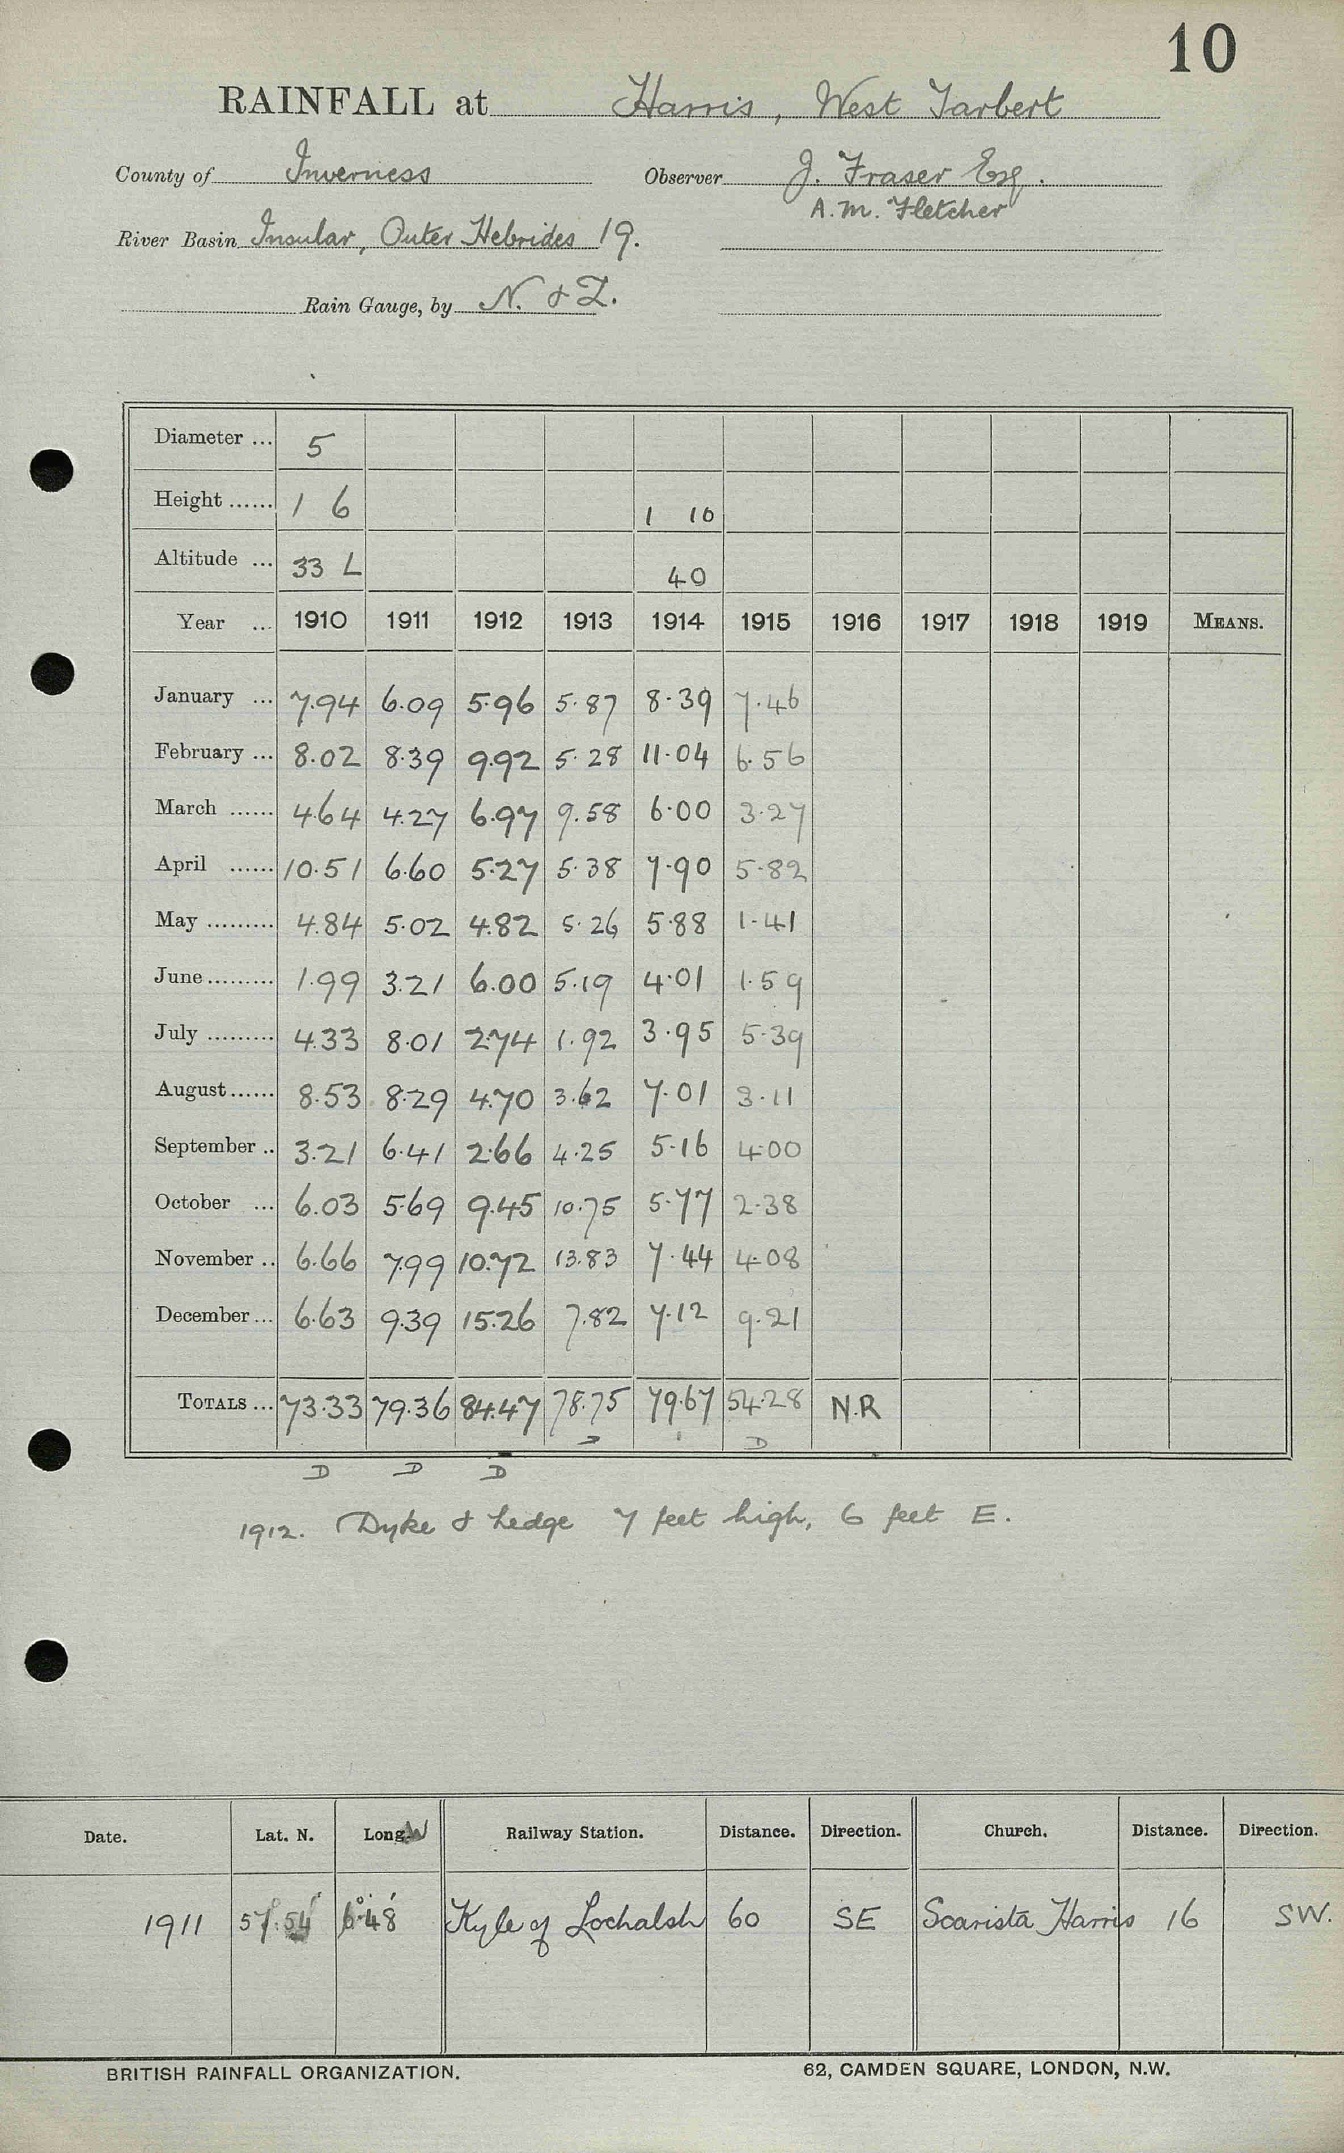 10
RAINFALL at Harris, West Tarbert
County of Inverness Observer J. Fraser Esq.
A.M. Fletcher
River Basin Insular, Outer Hebrides 19.
Rain Gauge, by N. & Z.
Diameter ... 5
Height ...... 1 6 1 10
Altitude ... 33 L 40
Year ... 1910 1911 1912 1913 1914 1915 1916 1917 1918 1919 MEANS.
January ... 7.94 6.09 5.96 5.87 8.39 7.46
February ... 8.02 8.39 9.92 5.28 11.04 6.56
March ...... 4.64 4.27 6.97 9.58 6.00 3.27
April ...... 10.51 6.60 5.27 5.38 7.90 5.82
May ......... 4.84 5.02 4.82 5.26 5.88 1.41
June ......... 1.99 3.21 6.00 5.19 4.01 1.59
July ......... 4.33 8.01 2.74 1.92 3.95 5.39
August ...... 8.53 8.29 4.70 3.62 7.01 3.11
September .. 3.21 6.41 2.66 4.25 5.16 4.00
October ... 6.03 5.69 9.45 10.75 5.77 2.38
November .. 6.66 7.99 10.72 13.83 7.44 4.08
December ... 6.63 9.39 15.26 7.82 7.12 9.21
TOTALS ... 73.33 79.36 84.47 78.75 79.67 54.28 N.R
D
D D D
1912. Dyke & hedge 7 feet high, 6 feet E.
Date. Lat. N. Long. W Railway Station. Distance. Direction. Church. Distance. Direction.
1911 57°.54' 6°.48' Kyle of Lochalsh 60 SE Scarista Harris 16 SW.
BRITISH RAINFALL ORGANIZATION. 62, CAMDEN SQUARE, LONDON, N.W.